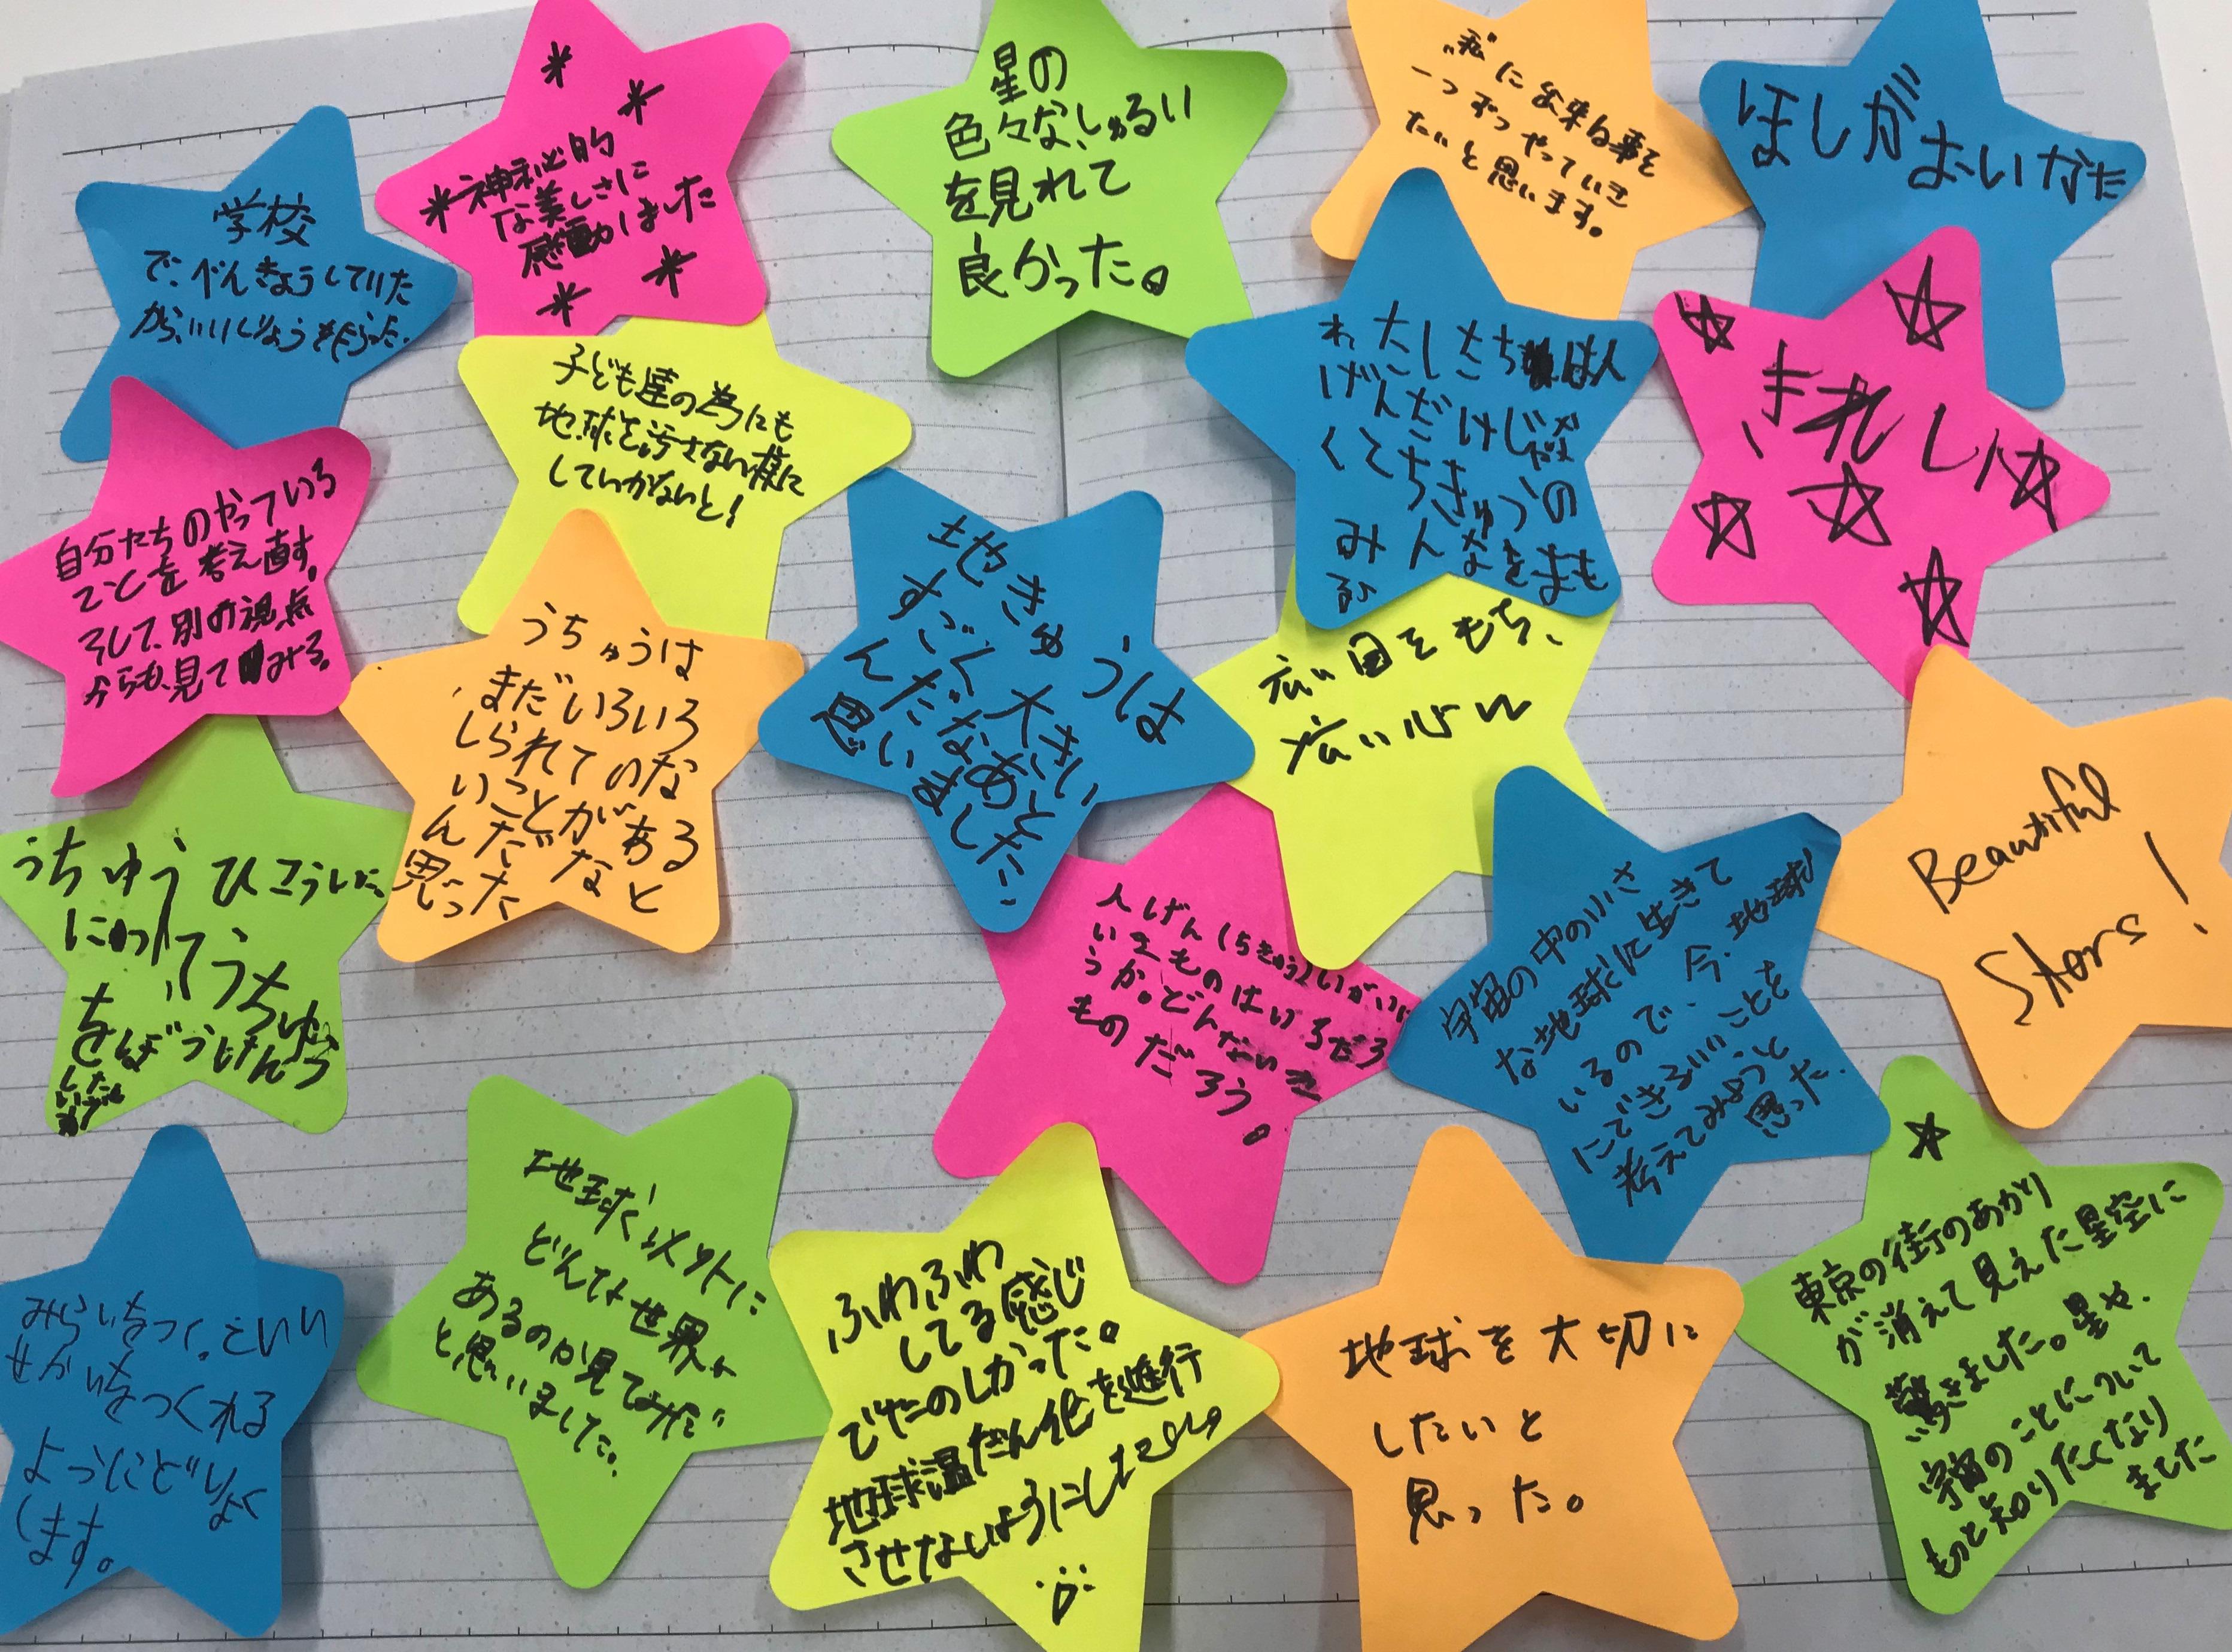 学校
で、べんきょうしていた
から、いいしじょうをもらった。
神秘的
な美しさに
感動しました
星の
色々な、しゅるい
を見れて
良かった。
"私"に出来る事を
一つずつやっていき
たいと思います。
ほしがおいなた
わたしたちは人
げんだけじゃな
くてちきゅうの
みんなをまも
る
きれい
子ども達の為にも
地球を汚さない様に
していかないと!
自分たちのやっている
ことを考え直す。
そして、別の視点
からも、見てみる。
うちゅうは
まだいろいろ
しられてのな
いことがある
んだなと
思った
地きゅうは
すごく大きい
んだなあと
思いました。
広い目をもち、
広い心で
Beautiful
Stars!
うちゅうひこうし
にわってうちゅう
をぼうけん
したい
人げん(ちきゅう)いがいに
いきものはいるだろ
うか。どんないき
ものだろう。
宇宙の中の小さ
な地球に生きて
いるので、今、地球
にできるいいことを
考えてみようと
思った。
みらいをつくっていい
せかいをつくれる
ようにどりょく
します。
地球以外に
どんな世界が
あるのか見てみたい
と思いました。
ふわふわ
してる感じ
でたのしかった。
地球温だん化を進行
させないようにしたい
地球を大切に
したいと
思った。
東京の街のあかり
が消えて見えた星空に
驚きました。星や、
宇宙のことについて
もっと知りたくなり
ました